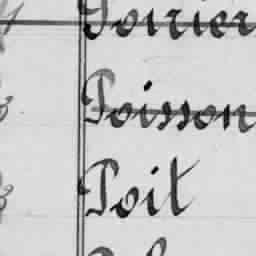 Poirier
Poisson
Poit